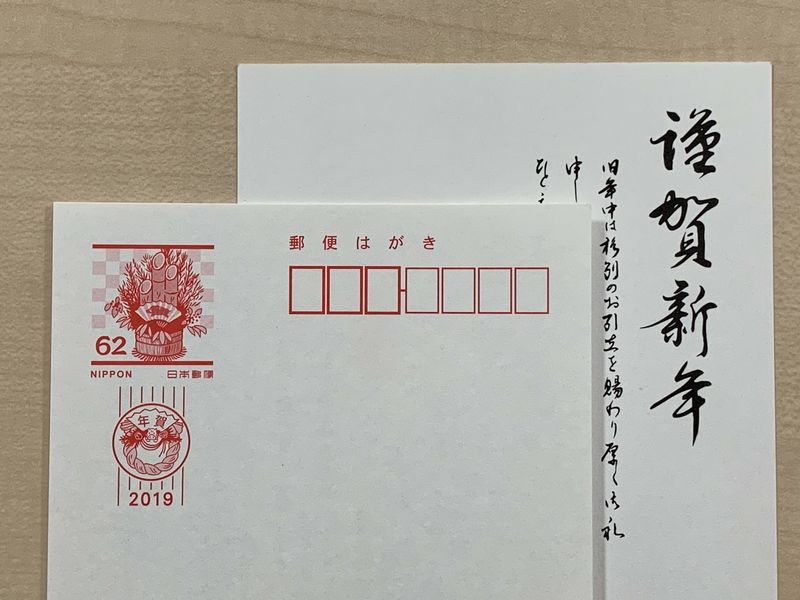 謹賀新年
旧年中は格別のお引立を賜わり厚く御礼
申し
郵便はがき
62
NIPPON 日本郵便
年賀
2019